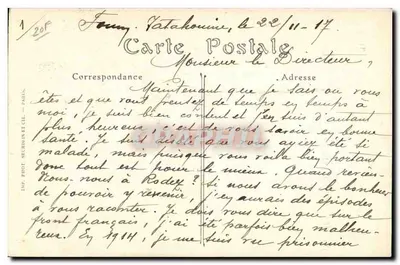 1/20f
Foum Tatahouine, le 22/11-17.
Carte Postale
Monsieur le Directeur,
Correspondance
Adresse
Maintenant que je sais ou vous
êtes et que vous pensez de temps en temps à
moi, je suis bien content et j'en suis d'autant
plus heureux, c'est de vous savoir en bonne
santé; je suis que vous ayiez été si
malade, mais puisque vous voilà bien portant
donc tout est pour le mieux. Quand revien-
drons-nous à Rodez? Si nous avons le bonheur
de pouvoir y revenir, j'en aurais des épisodes
à vous raconter. Je dois vous dire que sur le
front français, j'ai été parfois bien malheu-
reux. En 1914, je me suis vu prisonnier